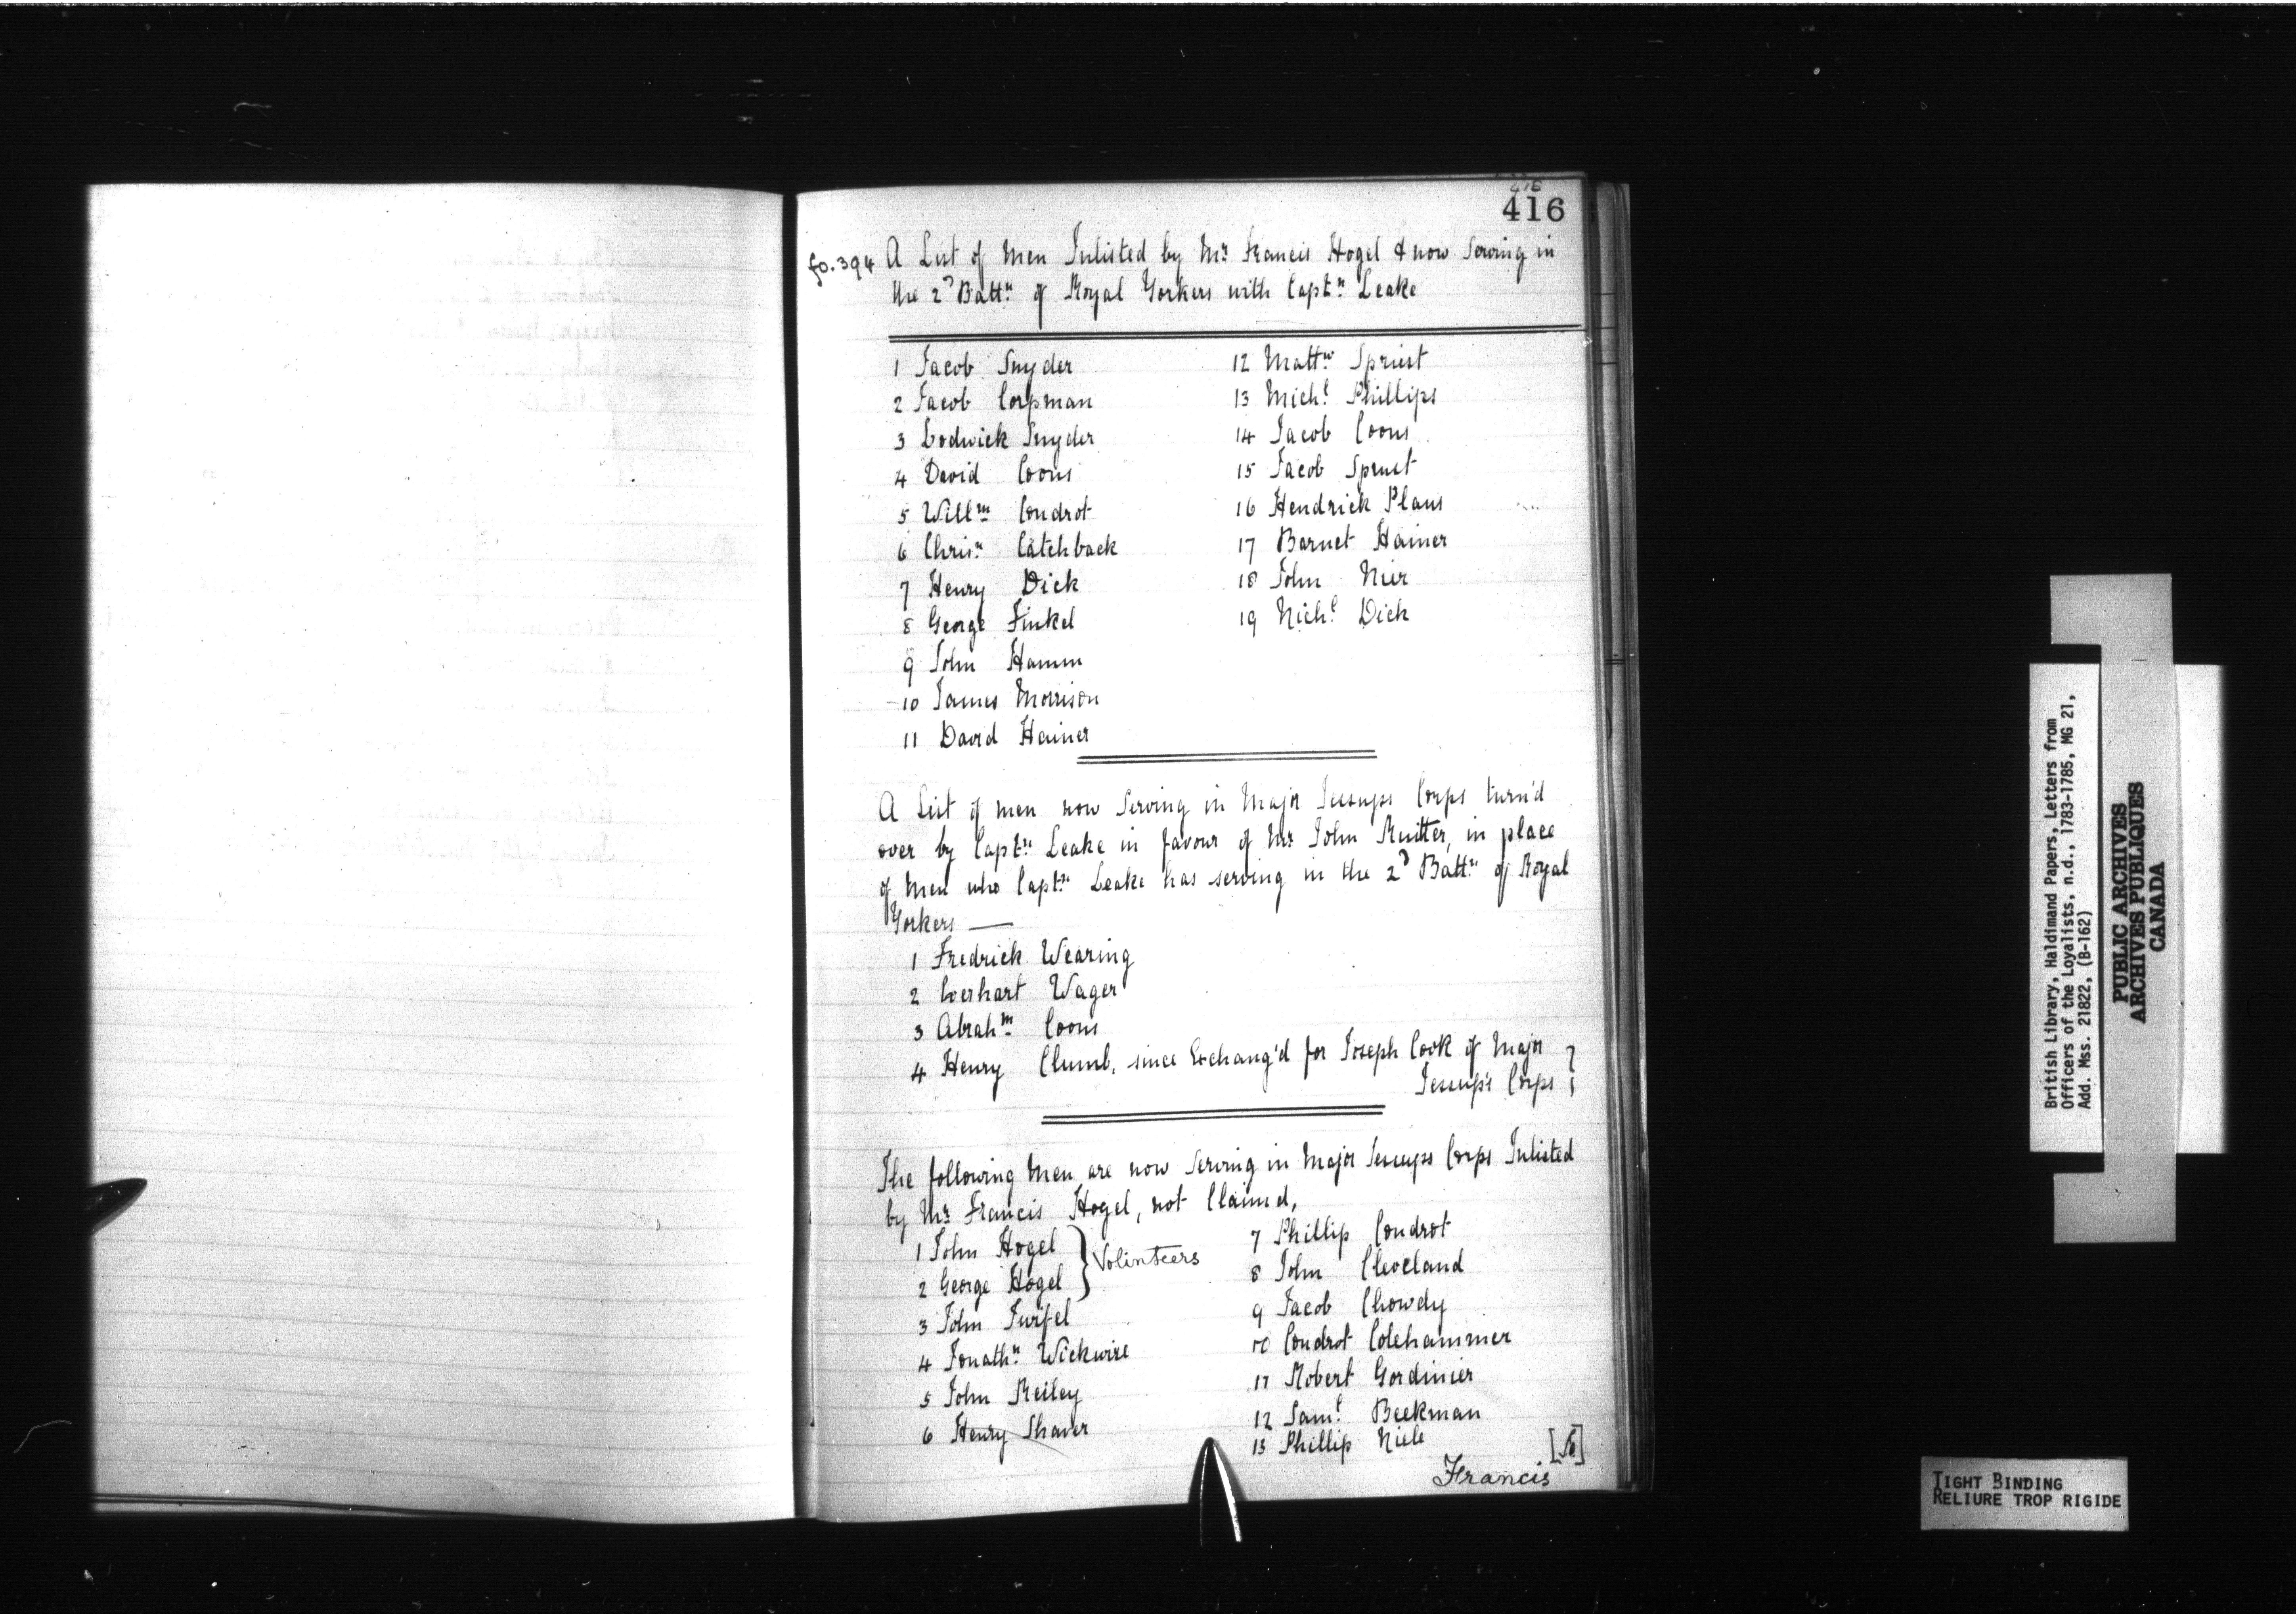 416
fo. 394 A List of Men Inlisted by Mr Francis Hogel & now Serving in
the 2d Battn of Royal Yorkers with Captn Leake
1 Jacob Snyder
2 Jacob Corpman
3 Lodwick Snyder
4 David Coons
5 Willm Condrot
6 Chrisn Catchback
7 Henry Dick
8 George Finkel
9 John Hamm
10 James Morrison
11 David Hainer
12 Mattw Spriest
13 Michl Phillips
14 Jacob Coons
15 Jacob Sprust
16 Hendrick Plaus
17 Barnet Hainer
18 John Nier
19 Nichl Dick
A List of men now Serving in Major Jessups Corps turn'd
over by Captn Leake in favour of Mr John Ruitter, in place
of Men who Captn Leake has serving in the 2d Battn of Royal
Yorkers —
1 Fredrick Wearing
2 Everhart Wager
3 Abrahm Coons
4 Henry Clumb, since Exchang'd for Joseph Cook of Major
Jessup's Corps
The following Men are now Serving in Major Jessups Corps Inlisted
by Mr Francis Hogel, not Claimd,
1 John Hogel
2 George Hogel } Volinteers
3 John Furfel
4 Jonathn Wickwire
5 John Reiley
6 Henry Shaver
7 Phillip Condrot
8 John Cleveland
9 Jacob Chowdy
10 Condrot Colehammer
11 Robert Gordinier
12 Saml Beekman
13 Phillip Niele
Francis
British Library, Haldimand Papers, Letters from
Officers of the Loyalists, n.d., 1783-1785, MG 21,
Add. Mss. 21822, (B-162)
PUBLIC ARCHIVES
ARCHIVES PUBLIQUES
CANADA
TIGHT BINDING
RELIURE TROP RIGIDE